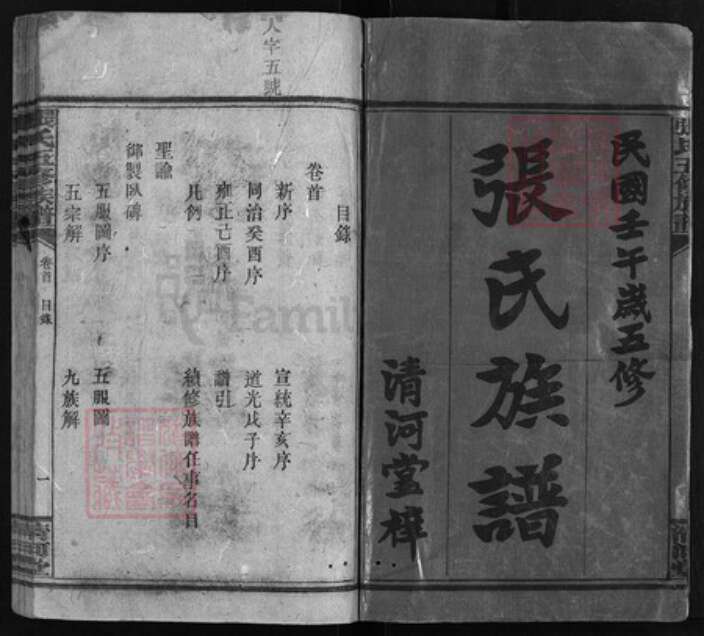 民國壬午歲五修
張氏族譜
清河堂梓
人字五號
目錄
卷首
新序 宣統辛亥序
同治癸酉序 道光戊子序
雍正己酉序 譜引
凡例 續修族譜任事名目
聖諭
御製臥碑
五服圖序 五服圖
五宗解 九族解
張氏五修族譜
卷首 目錄
一
清河堂